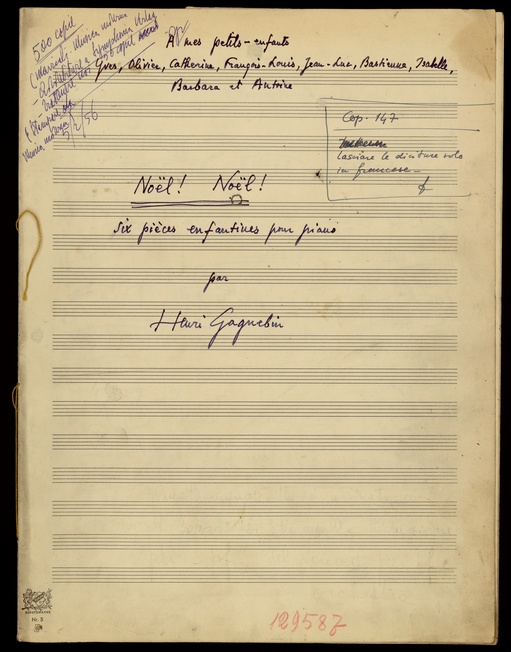 500 copie
5/2/56
A mes petits-enfants
Yves, Olivier, Catherine, François-Louis, Jean-Luc, Bastienne, Isabelle,
Barbara et Antoine
Cop. 147
Lasciare le diciture solo
in francese -
Noël! Noël!
Six pièces enfantines pour piano
par
Henri Gagnebin
Nr. 3
129587